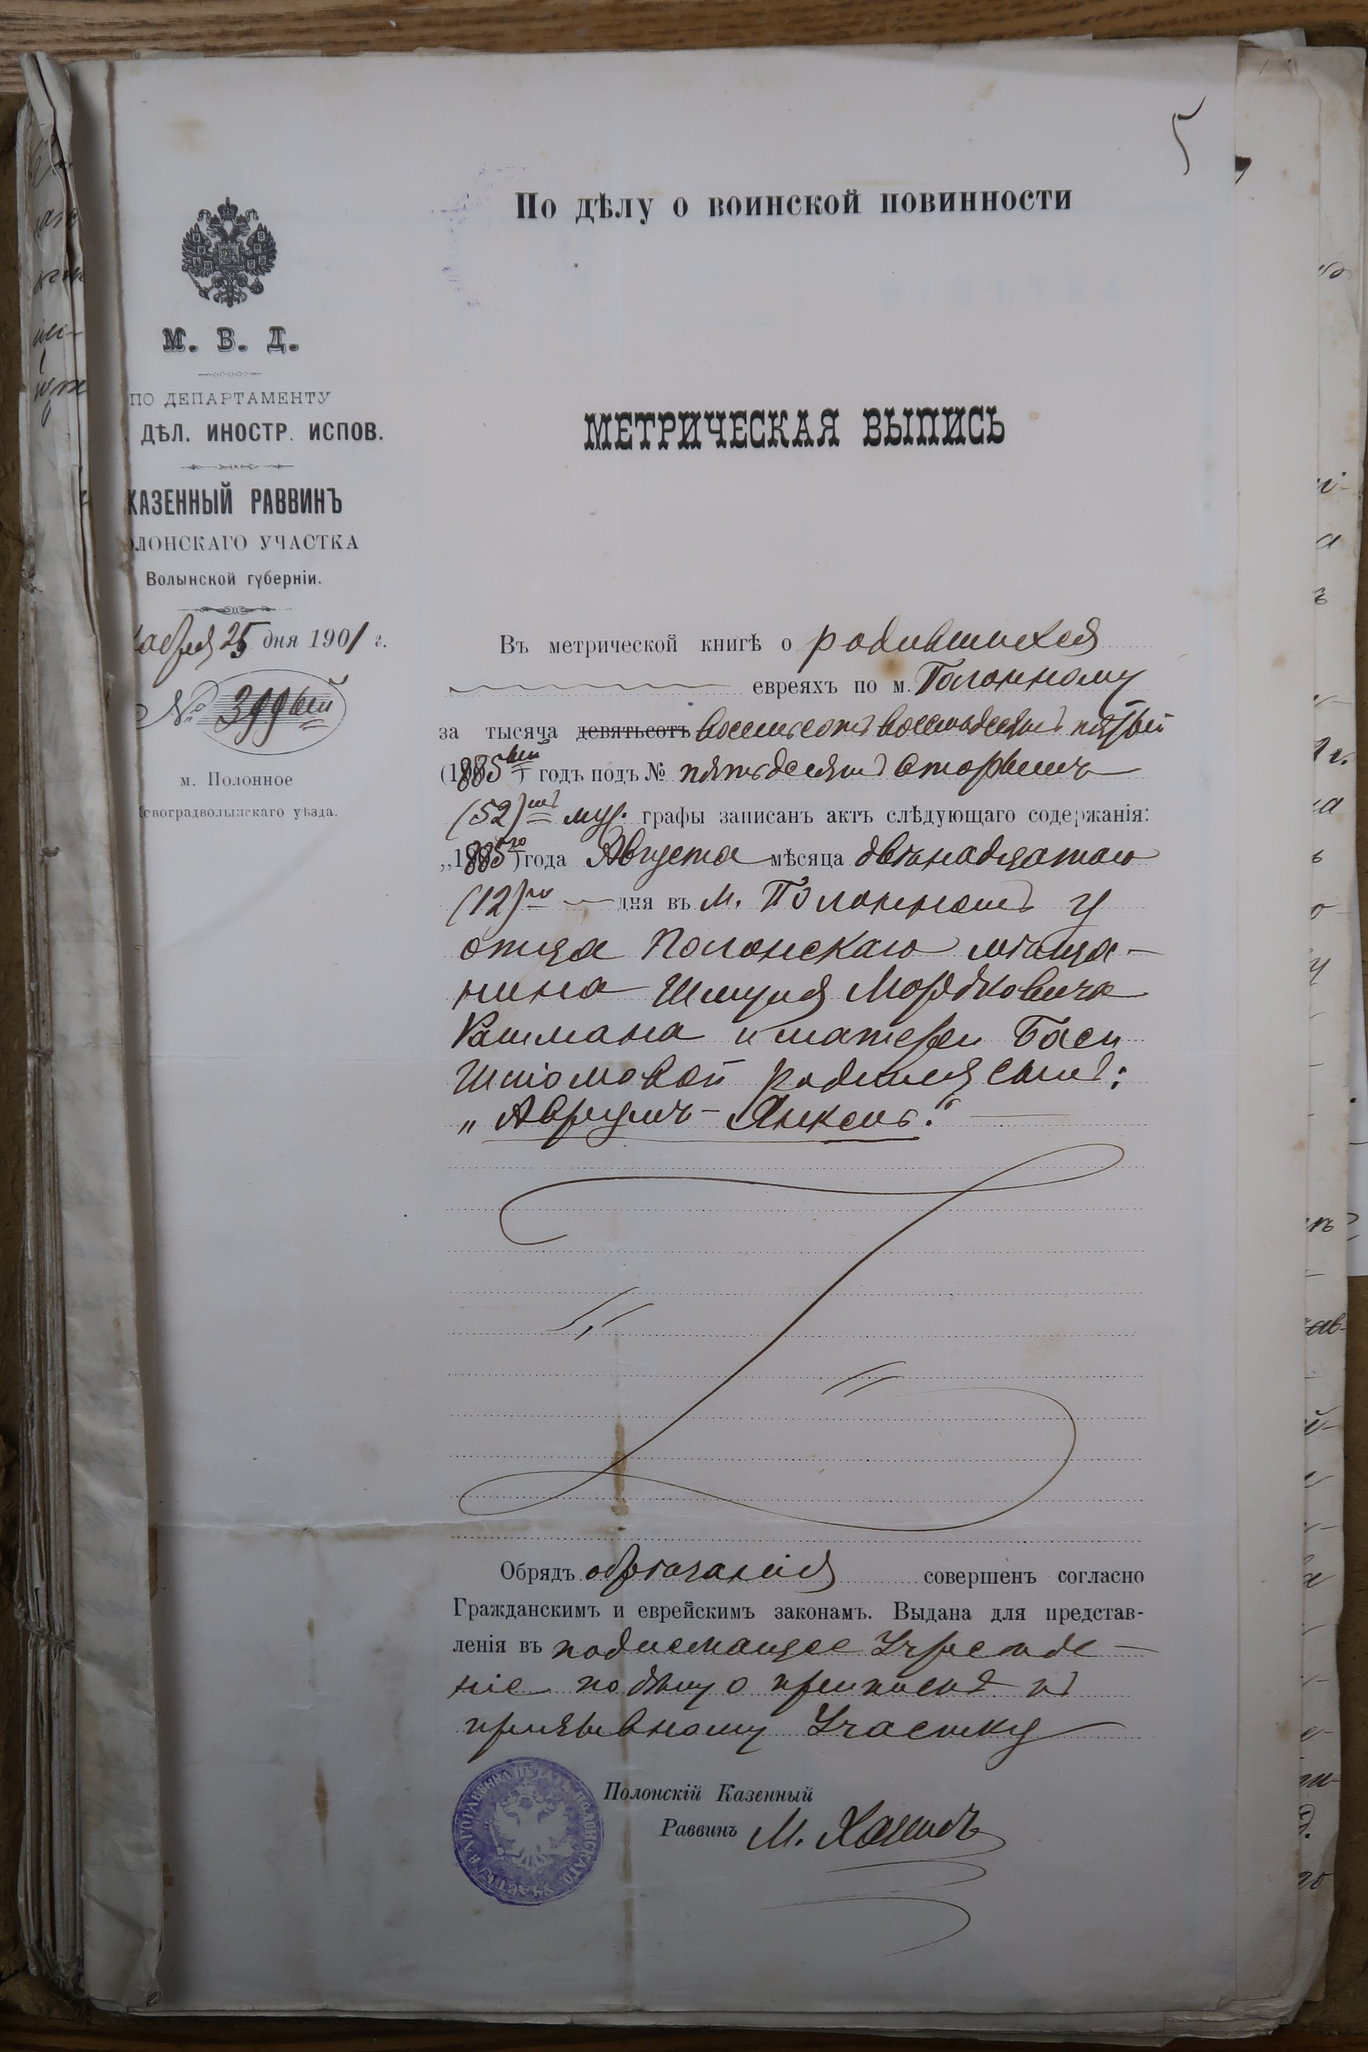 5
По дѣлу о воинской повинности
М. В. Д.
ПО ДЕПАРТАМЕНТУ
ДѢЛ. ИНОСТР. ИСПОВ.
КАЗЕННЫЙ РАВВИНЪ
ОЛОНСКАГО УЧАСТКА
Волынской губерніи.
25 дня 1901 г.
№ 399ый
м. Полонное
овоградволынскаго уѣзда.
МЕТРИЧЕСКАЯ ВЫПИСЬ
Въ метрической книгѣ о родившихся
евреяхъ по м. Полонному
за тысяча девятьсотъ восемьсотъ восемьдесятъ пятый
(1885ый) годъ подъ № пятьдесятъ вторымъ
(52)мъ муж. графы записанъ актъ слѣдующаго содержанія:
„1885го) года Августа мѣсяца двѣнадцатаго
(12)го дня въ м. Полонномъ у
отца Полонскаго мѣща-
нина Шмуля Мордковича
Рашмана и матери Баси
Шліомовой родился сынъ:
„Аврумъ-Янкель."
Обрядъ обрѣзанія совершенъ согласно
Гражданскимъ и еврейскимъ законамъ. Выдана для представ-
ленія въ подлежащее Учрежде-
ніе по дѣлу о припискѣ къ
призывному Участку
Полонскій Казенный
Раввинъ М.